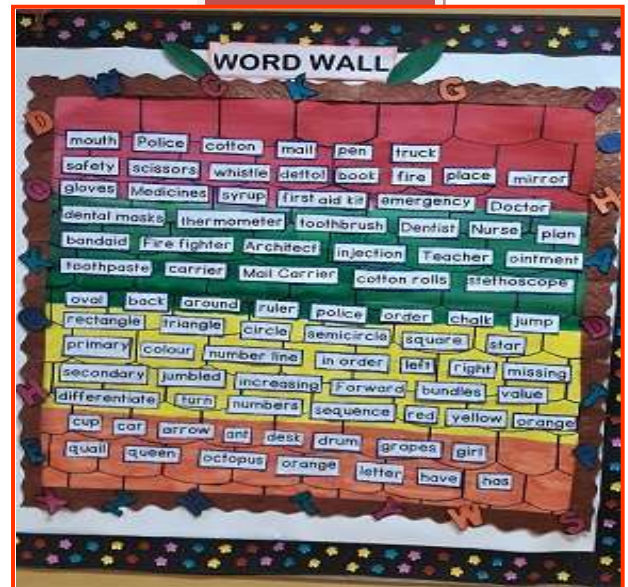 WORD WALL
mouth Police cotton mail pen truck
safety scissors whistle dettol book fire place mirror
gloves Medicines syrup first aid kit emergency Doctor
dental masks thermometer toothbrush Dentist Nurse plan
bandaid Fire fighter Architect injection Teacher ointment
toothpaste carrier Mail Carrier cotton rolls stethoscope
oval back around ruler police order chalk jump
rectangle triangle circle semicircle square star
primary colour number line in order left right missing
secondary jumbled increasing Forward bundles value
differentiate turn numbers sequence red yellow orange
cup car arrow ant desk drum grapes girl
quail queen octopus orange letter have has